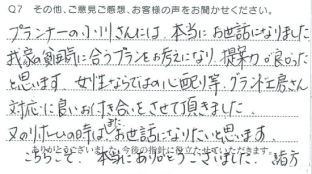 Q7 その他、ご意見ご感想、お客様の声をお聞かせください。
プランナーの小川さんには、本当にお世話になりました
我家の質問に合うプランをお考えになり、提案力が良かった
と思います。女性ならではの心配り等、グランド工房さん
対応に良いお付き合いをさせて頂きました。
又のリガーデンの時はまたお世話になりたいと思います。
ありがとうございました。今後の指針に役立たせていただきます。
こちらこそ、本当にありがとうございました。